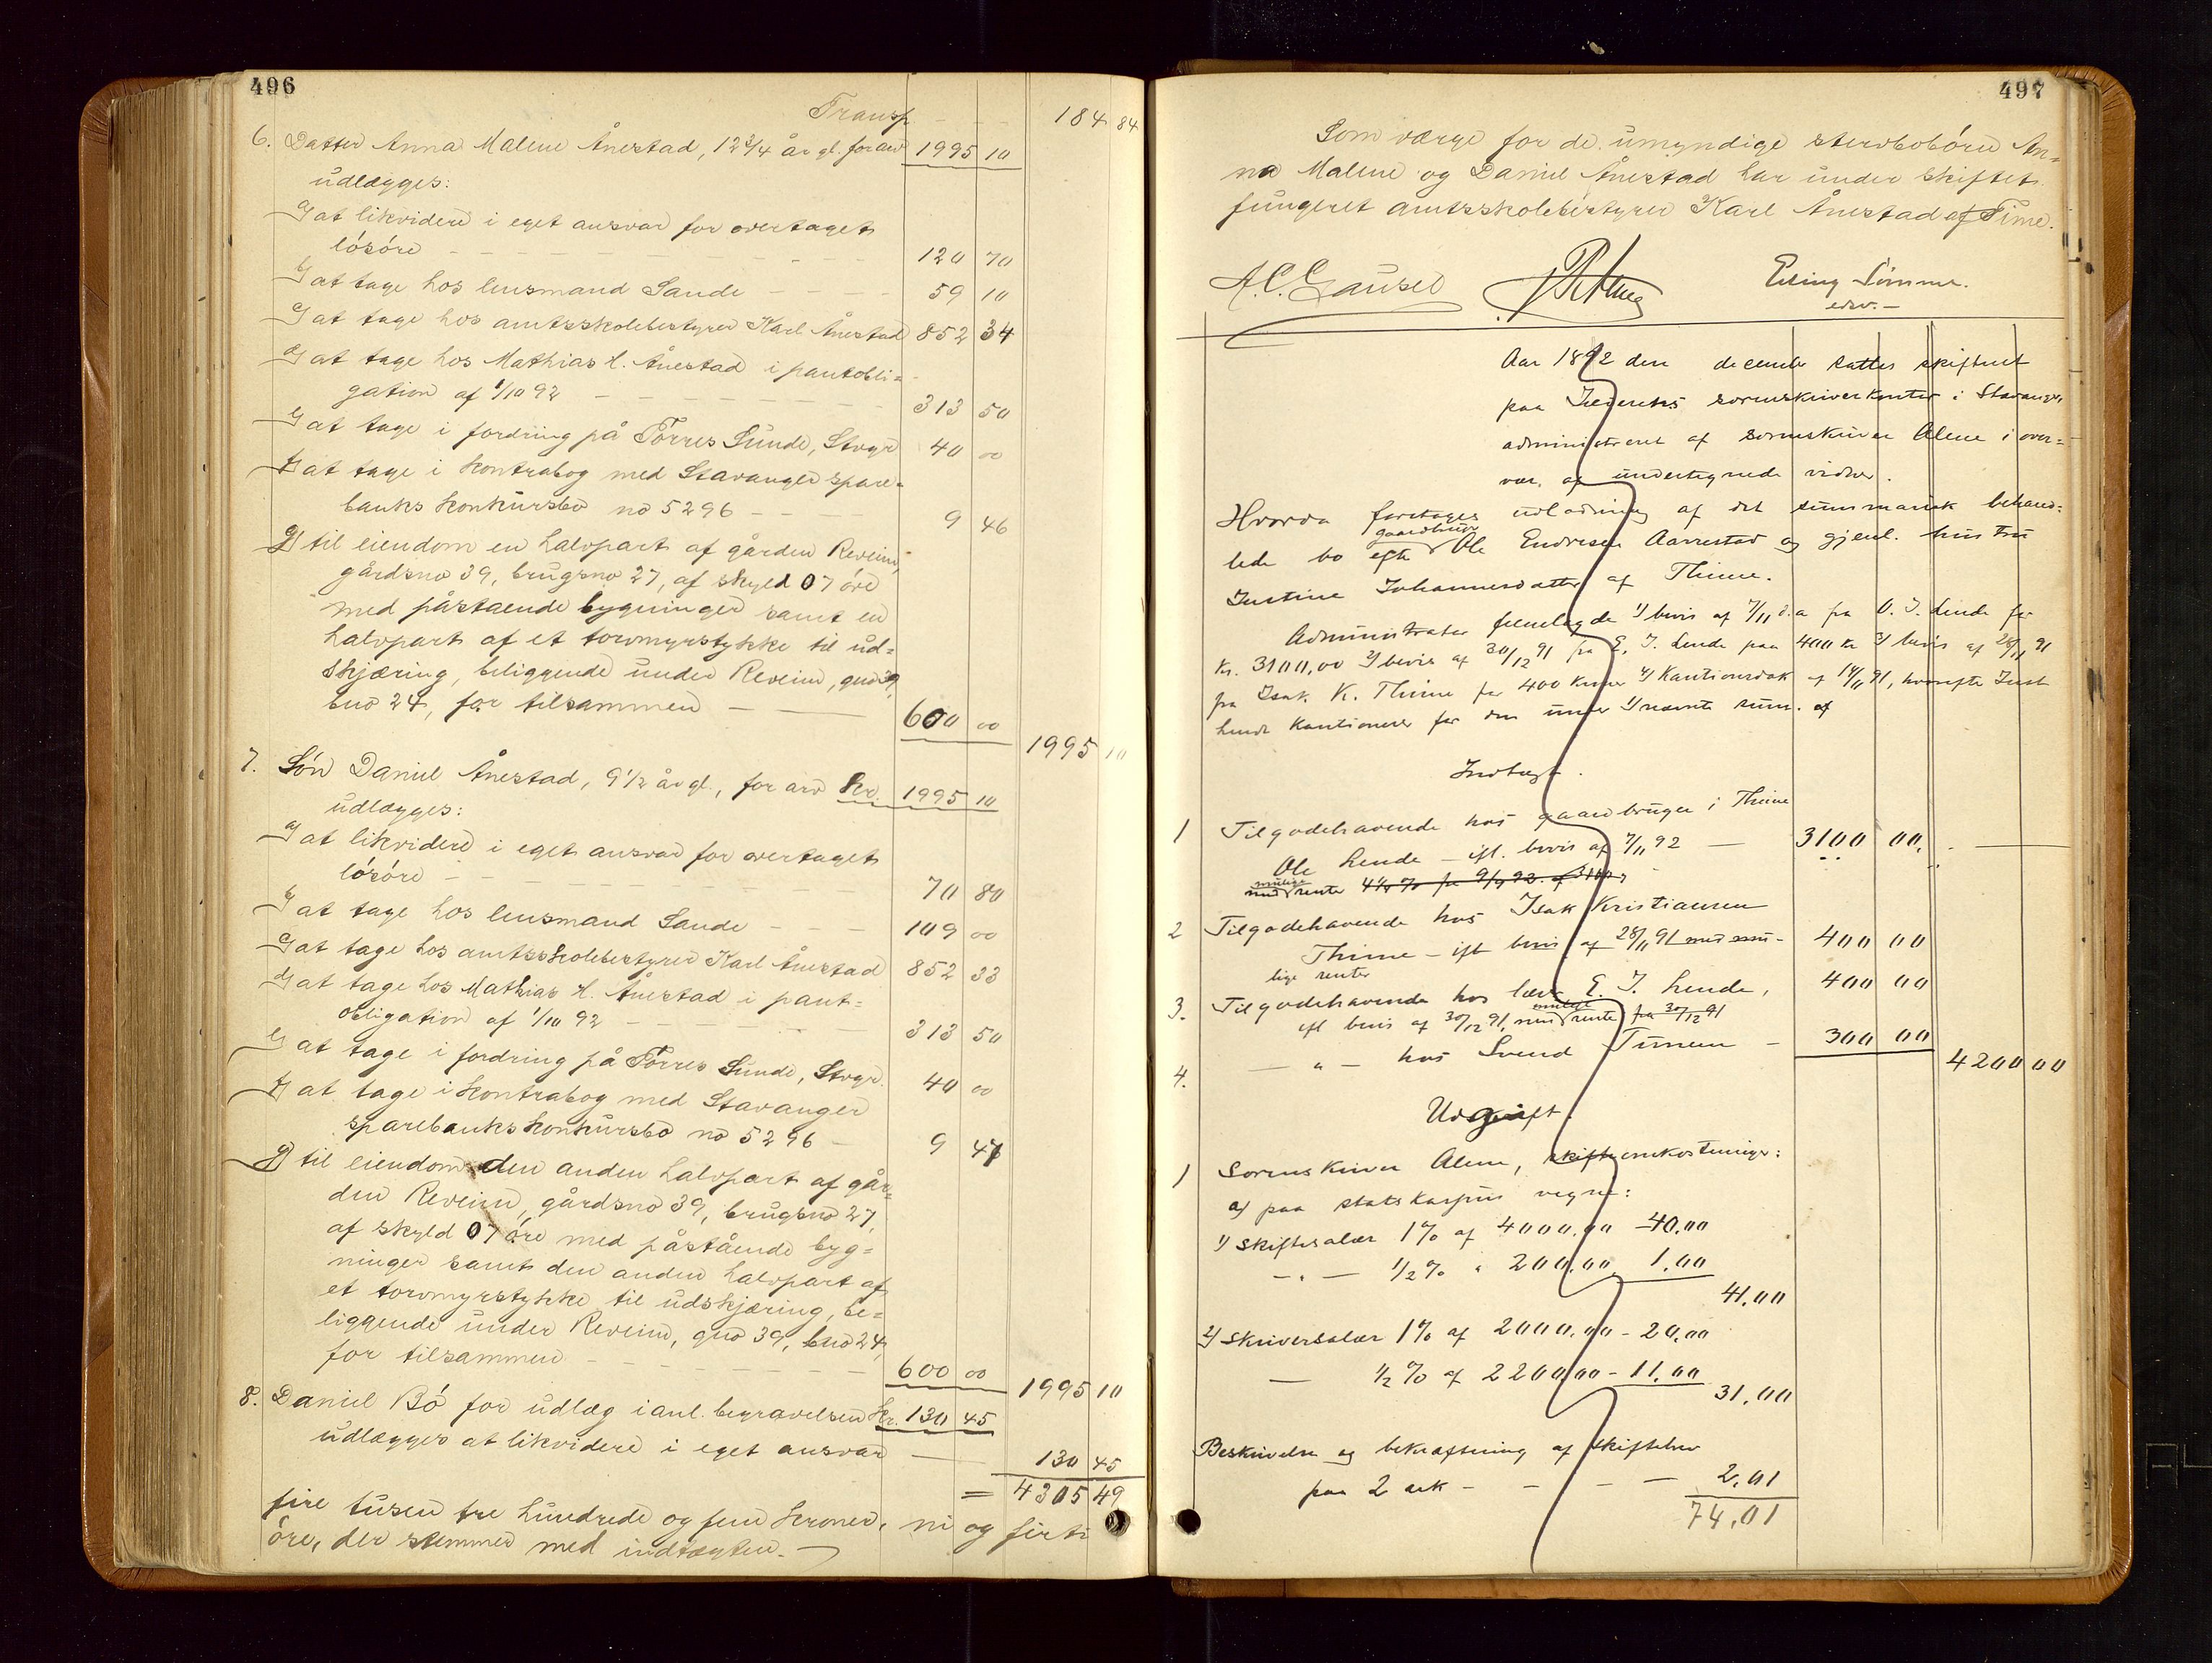 496
Transp. - - - 184 84
6. Datter Anna Malene Ånestad, 12 3/4 år gl. for arv 1995 10
udlægges:
a) at likvidere i eget ansvar for overtaget
lósóre - - - 120 70
b) at tage hos lensmand Sande - - - 59 10
c) at tage hos amtsskolebestyrer Karl Ånestad 852 34
d) at tage hos Mathias H. Ånestad i pantobli=
gation af 1/10 92 - - - 313 50
e) at tage i fordring på Torres Sunde, Stvgr 40 00
f) at tage i kontrabog med Stavanger spare=
banks konkursbo no 5296 - - - 9 46
g) til eiendom en halvpart af gården Reveim,
gårdsno 39, brugsno 27, af skyld 07 óre
med påstaende bygninger samt en
halvpart af et torvmyrstykke til ud=
skjæring, beliggende under Reveim, gno 39,
bno 24, for tilsammen - - 600 00
1995 10
7. Són Daniel Ånestad, 9 1/2 år gl., for arv kr. 1995 10
udlægges:
a) at likvidere i eget ansvar for overtaget
lósóre - - - 70 80
b) at tage hos lensmand Sande - - - 109 00
c) at tage hos amtsskolebestyrer Karl Ånestad 852 33
d) at tage hos Mathias H. Ånestad i pant=
obligation af 1/10 92 - - - 313 50
e) at tage i fordring på Torres Sunde, Stvgr. 40 00
f) at tage i kontrabog med Stavanger
sparebanks konkursbo no 5296 - 9 47
g) til eiendom den anden halvpart af går=
den Reveim, gårdsno 39, brugsno 27,
af skyld 07 óre med påstående byg=
ninger samt den anden halvpart af
et torvmyrstykke til udskjæring, be=
liggende under Reveim, gno 39, bno 24,
for tilsammen - - - 600 00
1995 10
8. Daniel Bó for udlæg i anl. begravelsen kr. 130 45
udlægges at likvidere i eget ansvar - 130 45
= 4305 49
fire tusen tre hundrede og fem kroner, ni og firti
óre, der stemmer med indtægten. -
497
Som værge for de umyndige stervbobórn An=
na Malene og Daniel Ånestad har under skiftet
fungeret amtsskolebestyrer Karl Ånestad af Time.
A. C. Gausel Erling Sómme.
edsv. -
Aar 1892 den december sattes skifteret
paa Jæderens sorenskriverkontor i Stavanger
administreret af sorenskriver Alene i over=
vær. af undertegnede vidner.
Hvorda foretoges udlodning af det summarisk behand=
lede bo efter gaardbruger Ole Endresen Aarrestad og gjenl. hustru
Justine Johannesdatter af Thime.
Administrator fremlagde 1) bevis af 7/11 d.a fra O. J. Lende for
kr. 3100,00 2) bevis af 30/12 91 fra E. J. Lende paa 400 kr 3) bevis af 28/11 91
fra Isak K. Thime for 400 kroner 4) Kautionsdok af 14/11 91, hvorefter
Lende kautionerer for den under 1) nævnte sum. af
Indtægt.
1 Tilgodehavende hos gaardbruger i Thime
Ole Lende - ifl. bevis af 7/11 92 - 3100 00.
med mulige renter 4 1/2 % fra 9/9 92 af 3100,
2 Tilgodehavende hos Isak Kristiansen
Thime - ifl bevis af 28/11 91 med mu- 400 00
lige renter
3. Tilgodehavende hos E. J. Lende, 400 00
ifl bevis af 30/12 91, med mulige rente fra 30/12 91
4. - " - hos Svend Timem - 300 00
4200 00
Udgift.
1 Sorenskriver Alene, skifteomkostninger:
a) paa statskassens vegne:
1) Skiftesalær 1% af 4000,00 - 40.00
- " - 1/2 % " 200,00 1,00
41,00
2) Skriversalær 1% af 2000,00 - 20,00
- 1/2 % af 2200,00 - 11,00
31,00
Beskrivelse og bekræftning af skiftebrev
paa 2 ark - - - - 2,01
74,01